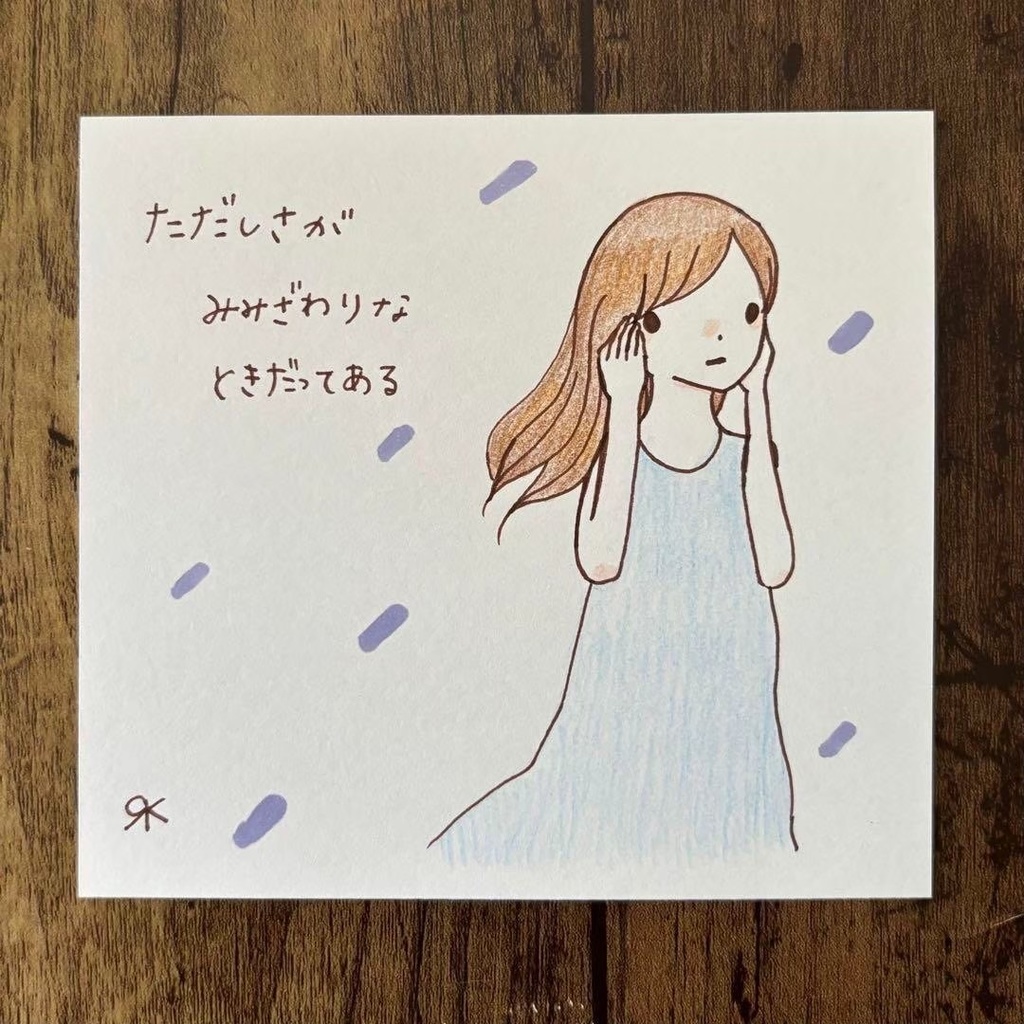 ただしさが
みみざわりな
ときだってある